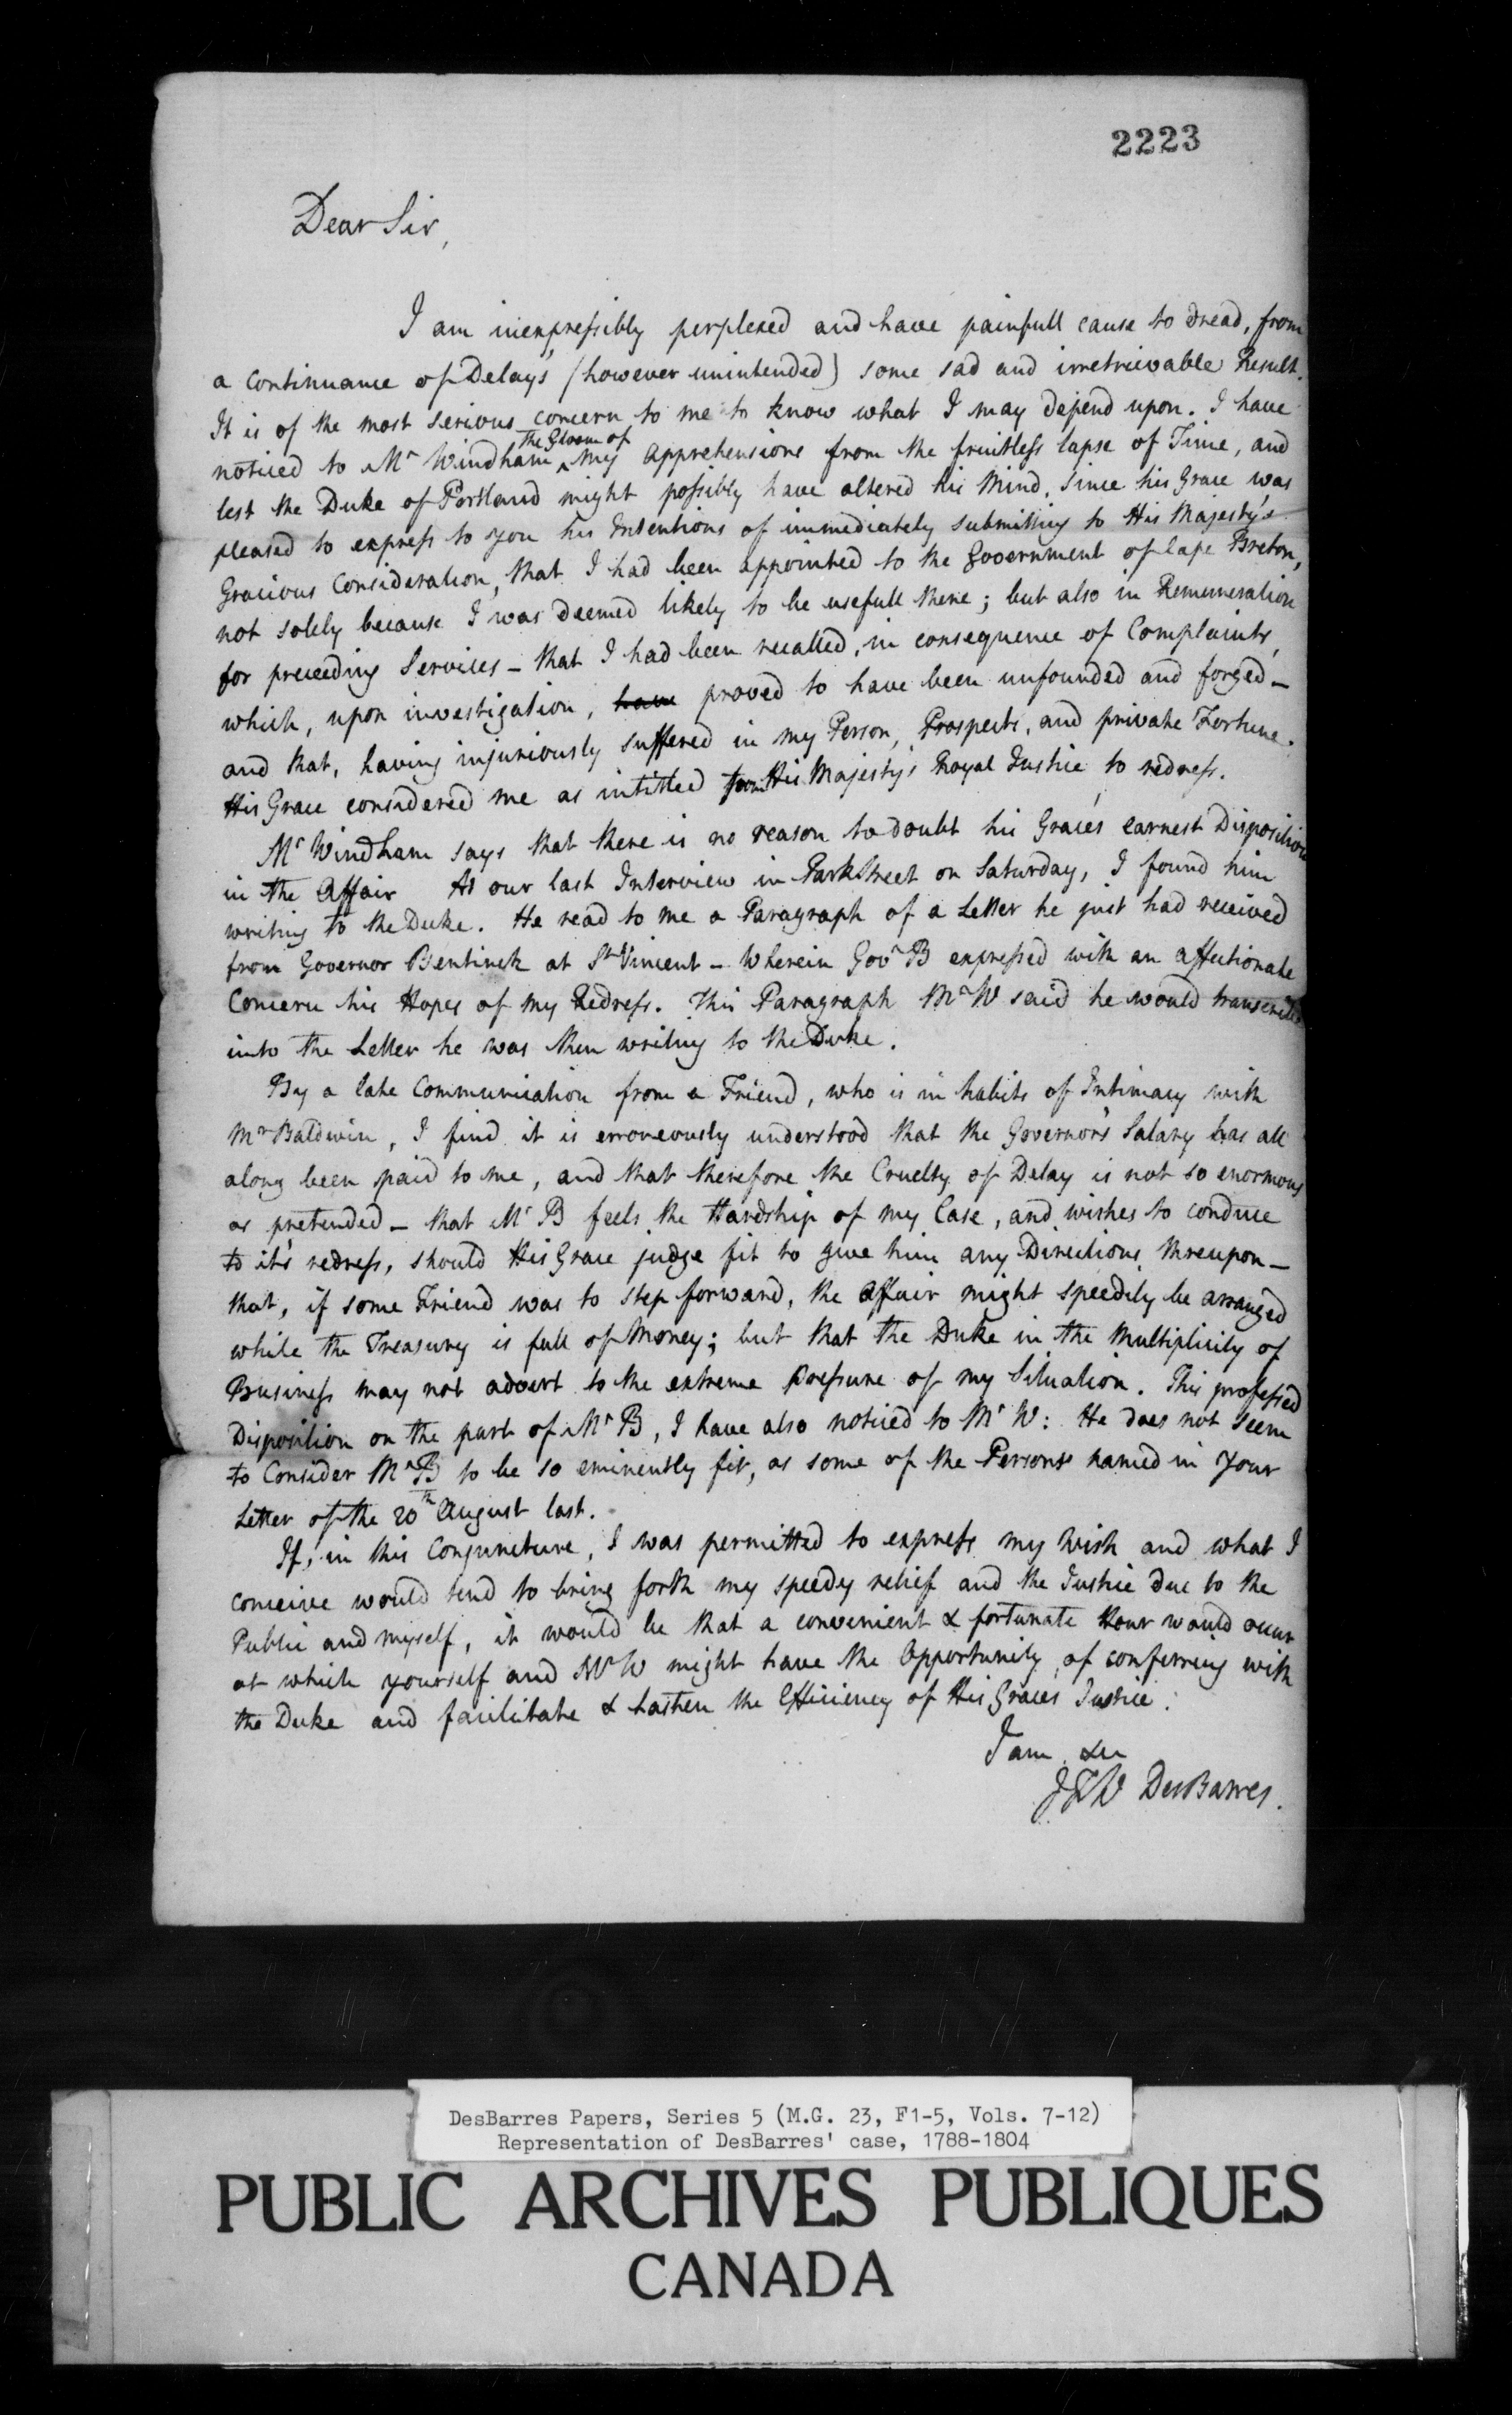 2223
Dear Sir,
I am inexpressibly perplexed and have painfull cause to dread, from
a continuance of Delays (however unintended) some sad and irretrievable Result.
It is of the most serious concern to me to know what I may depend upon. I have
the Gloom of
noticed to Mr Windham ‸ my apprehensions from the fruitless lapse of Time, and
lest the Duke of Portland might possibly have altered his Mind, since his Grace was
pleased to express to you his Intentions of immediately submitting to His Majesty's
Gracious Consideration, that I had been appointed to the Government of Cape Breton,
not solely because I was deemed likely to be usefull there; but also in Remuneration
for preceeding Services – that I had been recalled, in consequence of Complaints,
which, upon investigation, have proved to have been unfounded and forged –
and that, having injuriously suffered in my Person, Prospects, and private Fortune.
His Grace considered me as intitled from His Majesty's Royal Justice to redress.
Mr Windham says that there is no reason to doubt his Grace's earnest Disposition
in the Affair At our last Interview in Park Street on Saturday, I found him
writing to the Duke. He read to me a Paragraph of a Letter he just had received
from Governor Bentinck at St Vincent – Wherein Govr B expressed with an affectionate
Concern his Hopes of my Redress. This Paragraph Mr W said he would transcribe
into the Letter he was then writing to the Duke.
By a late Communication from a Friend, who is in habits of Intimacy with
Mr Baldwin, I find it is erroneously understood that the Governor's Salary has all
along been paid to me, and that therefore the Cruelty of Delay is not so enormous
as pretended – that Mr B feels the Hardship of my Case, and wishes to conduce
to it's redress, should His Grace judge fit to give him any Directions thereupon –
that, if some Friend was to step forward, the affair might speedily be arranged
while the Treasury is full of Money; but that the Duke in the Multiplicity of
Business may not advert to the extreme pressure of my Situation. This professed
Disposition on the part of Mr B, I have also noticed to Mr W: He does not seem
to Consider Mr B to be so eminently fit, as some of the Persons named in your
Letter of the 20th August last.
If, in this Conjuncture, I was permitted to express my Wish and what I
conceive would tend to bring forth my speedy relief and the Justice due to the
Public and myself, it would be that a convenient & fortunate Hour would occur
at which yourself and Mr W might have the Opportunity of conferring with
the Duke and facilitate & hasten the Efficiency of His Graces Justice.
I am &c
JFW DesBarres.
DesBarres Papers, Series 5 (M.G. 23, F1-5, Vols. 7-12)
Representation of DesBarres' case, 1788-1804
PUBLIC ARCHIVES PUBLIQUES
CANADA